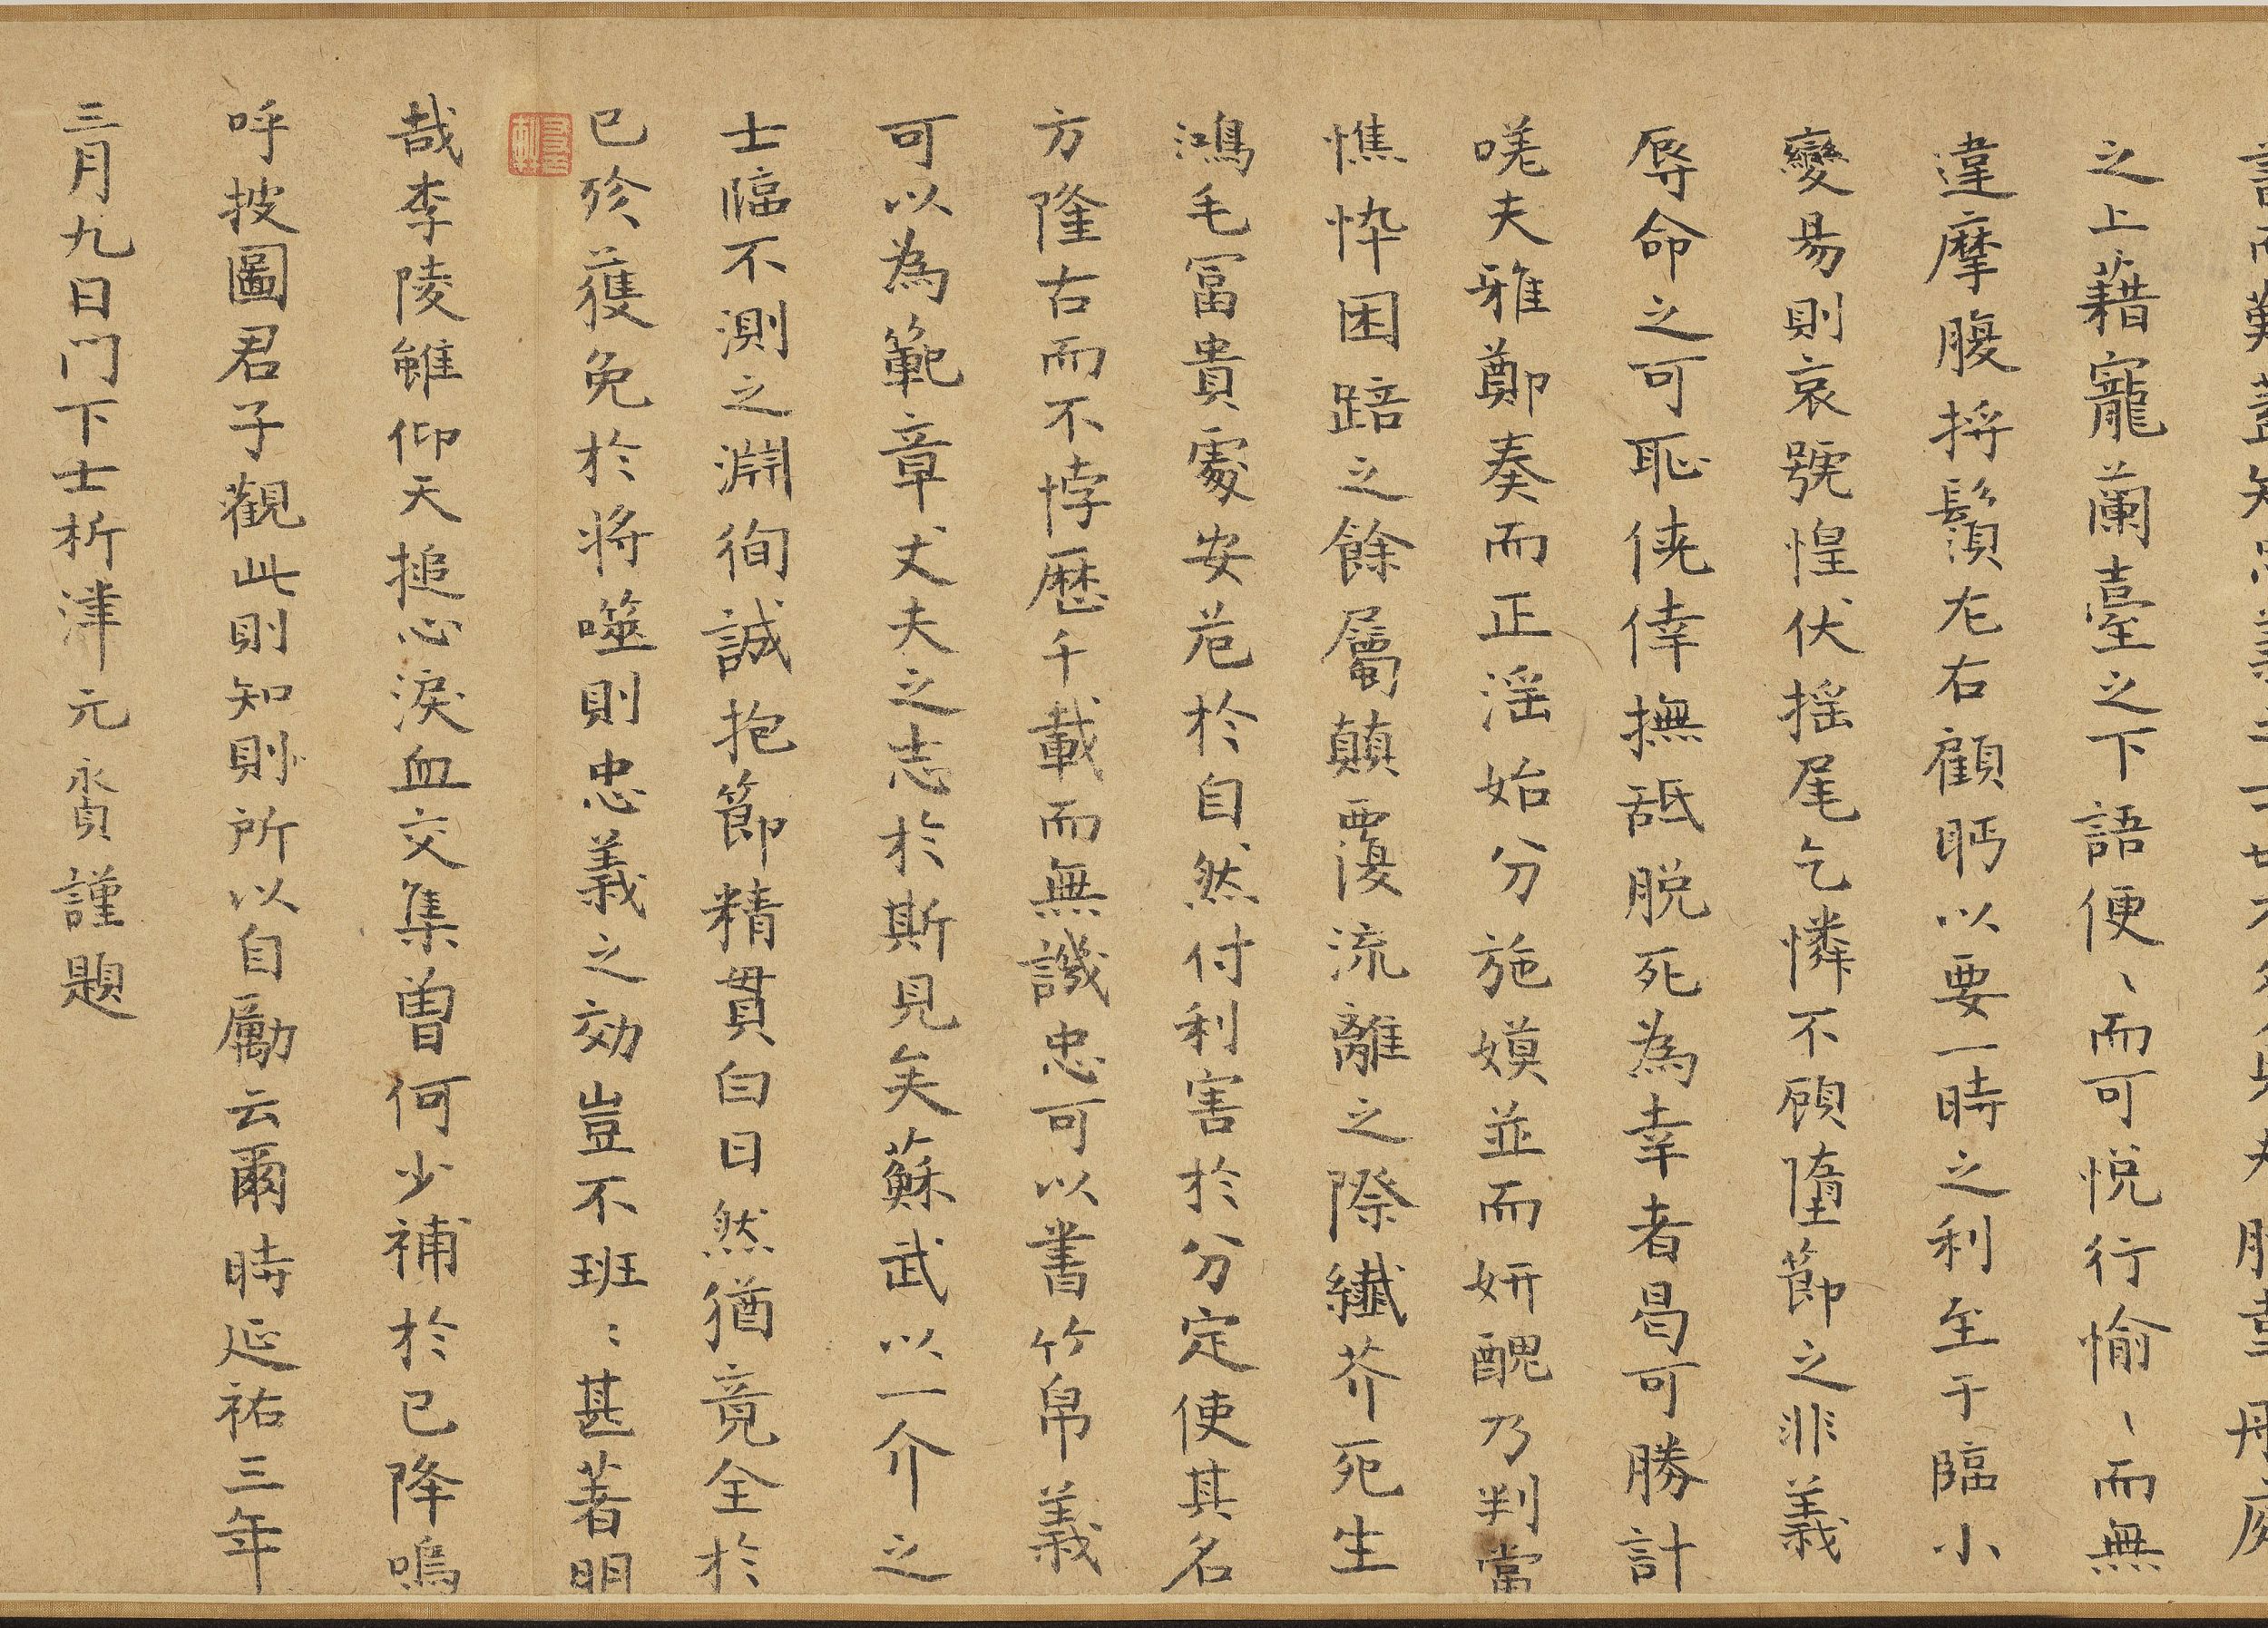 之上藉寵蘭臺之下語便、而可悅行愉、而無
違摩腹捋鬚左右顧眄以要一時之利至于臨小
變易則哀號惶伏搖尾乞憐不顧墮節之非義
辱命之可恥僥倖撫舐脫死為幸者曷可勝計
嗟夫雅鄭奏而正淫始分施嫫並而妍醜乃判當
憔悴困踣之餘屬顛覆流離之際纖芥死生
鴻毛冨貴處安危於自然付利害於分定使其名
方隆古而不悖歷千載而無譏忠可以書竹帛義
可以為範章丈夫之志於斯見矣蘇武以一介之
士臨不測之淵徇誠抱節精貫白日然猶竟全於
已殄獲免於將噬則忠義之効豈不班﹕甚著明
哉李陵雖仰天搥心淚血交集曾何少補於已降嗚
呼披圖君子觀此則知則所以自勵云爾時延祐三年
三月九日门下士析津元永贲謹題